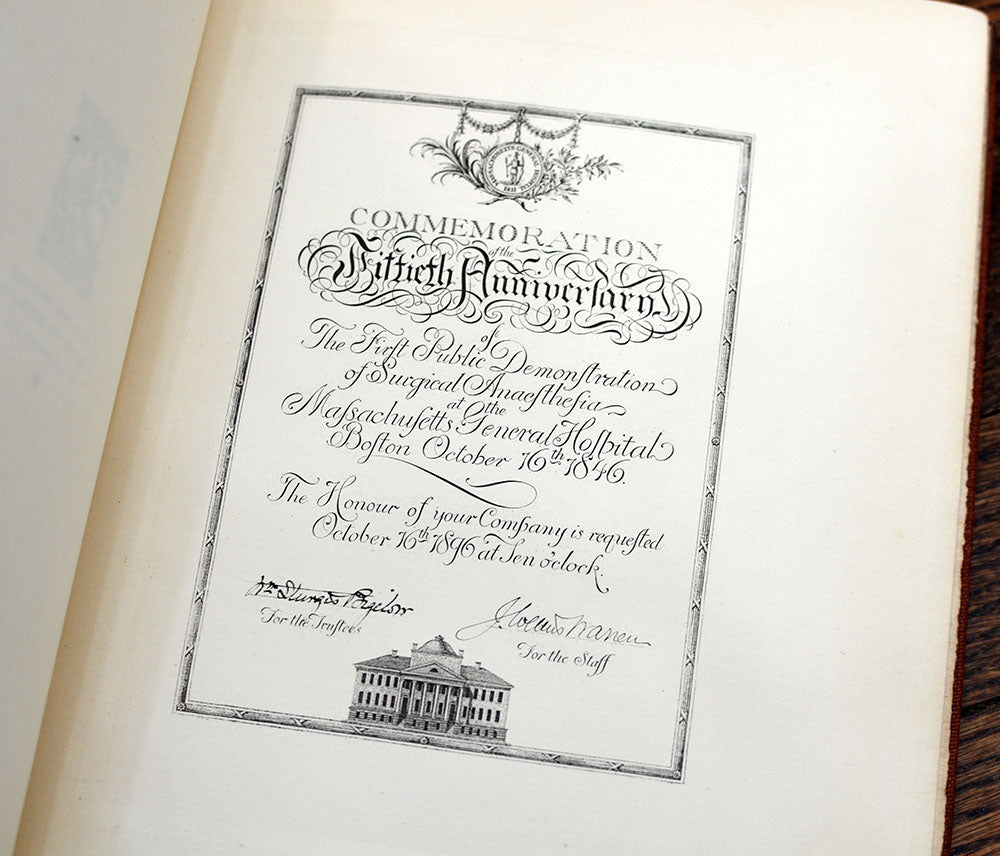 MASSACHUSETTS GENERAL HOSPITAL
1811
COMMEMORATION
of the
Fiftieth Anniverſary
of
The Firſt Public Demonſtration
of Surgical Anaeſtheſia
at the
Maſsachuſetts General Hoſpital
Boſton October 16th 1846.
The Honour of your Company is requeſted
October 16th 1896 at Ten o'clock.
Wm Sturgis Bigelow
For the Trustees
J. Collins Warren
For the Staff